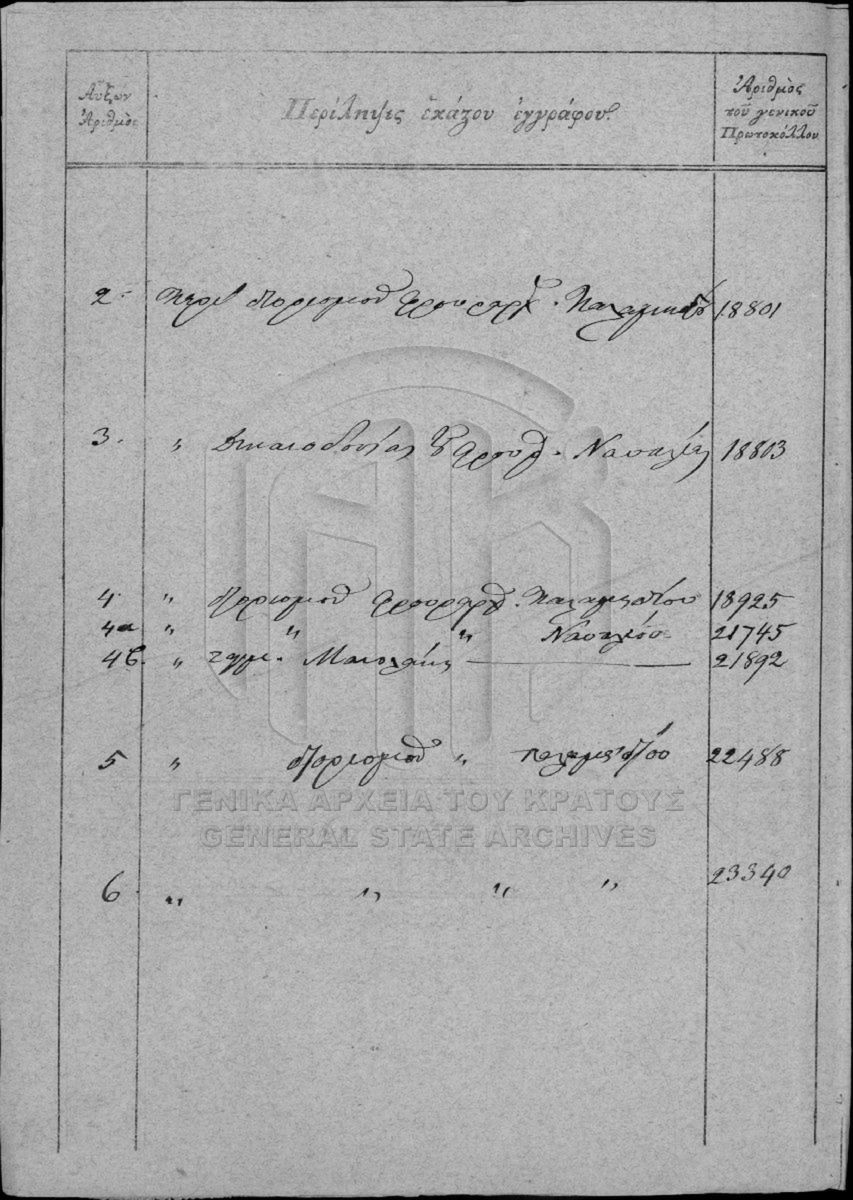 Αὔξων Ἀριθμὸς
Περίληψις ἑκάστου ἐγγράφου.
Ἀριθμὸς τοῦ γενικοῦ Πρωτοκόλλου
2. Περὶ διορισμοῦ φρουράρχ. Παλαμιδίου 18801
3. " Δικαιοδοσίας τοῦ φρουρ. Ναυπλίας 18803
4. " διορισμοῦ φρουράρχ. Παλαμιδίου 18925
4α " " " Ναυπλίου 21745
4β. " ταγμ. 21892
5 " διορισμοῦ " Παλαμιδίου 22488
6 " " " " 23340
ΓΕΝΙΚΑ ΑΡΧΕΙΑ ΤΟΥ ΚΡΑΤΟΥΣ
GENERAL STATE ARCHIVES